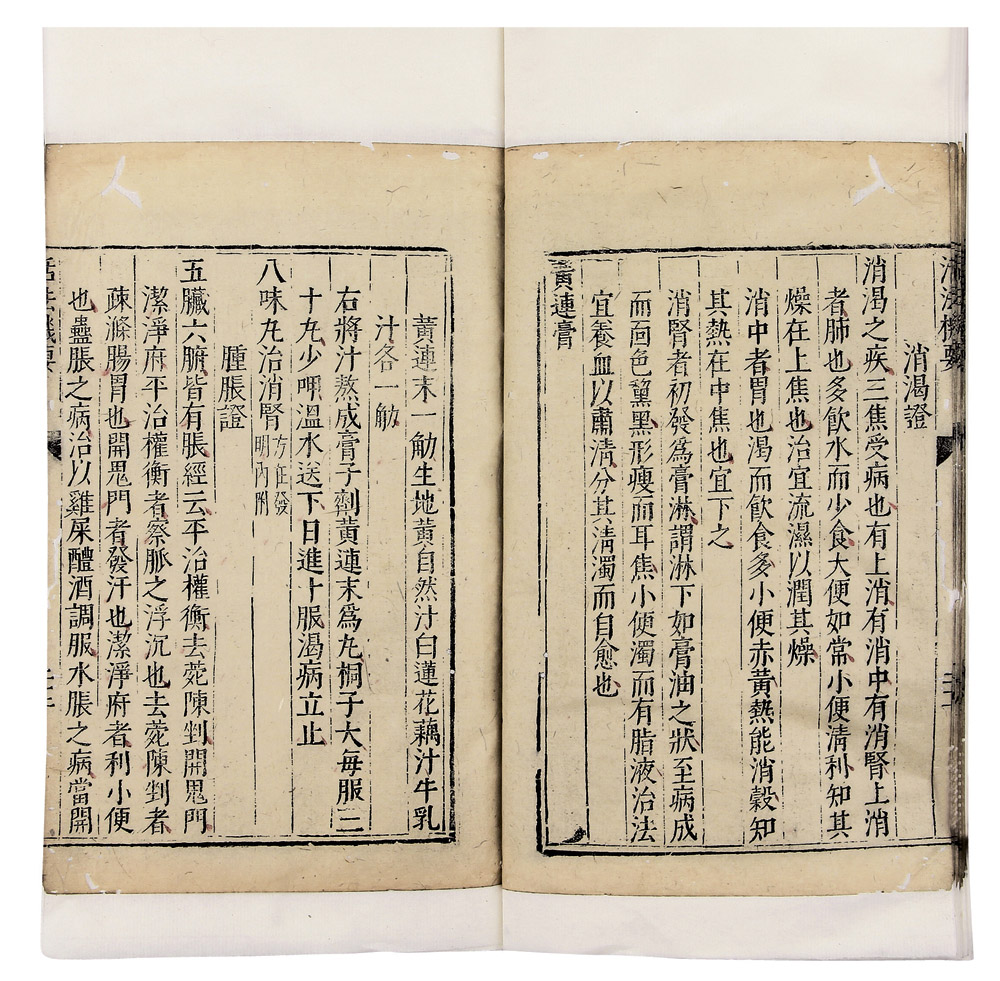 活法機要
消渴證
消渴之疾三焦受病也有上消有消中有消腎上消
者肺也多飲水而少食大便如常小便清利知其
燥在上焦也治宜流濕以潤其燥
消中者胃也渴而飲食多小便赤黃熱能消穀知
其熱在中焦也宜下之
消腎者初發爲膏淋謂淋下如膏油之狀至病成
而面色黧黑形瘦而耳焦小便濁而有脂液治法
宜養血以肅清分其清濁而自愈也
黃連膏
黃連末一觔生地黃自然汁白蓮花藕汁牛乳
汁各一觔
右將汁熬成膏子劑黃連末爲丸桐子大每服三
十丸少呷溫水送下日進十服渴病立止
八味丸治消腎
方在發
明內附
腫脹證
五臟六腑皆有脹經云平治權衡去菀陳剉開鬼門
潔淨府平治權衡者察脈之浮沉也去菀陳剉者
疎滌腸胃也開鬼門者發汗也潔淨府者利小便
也蠱脹之病治以雞屎醴酒調服水脹之病當開
活法機要